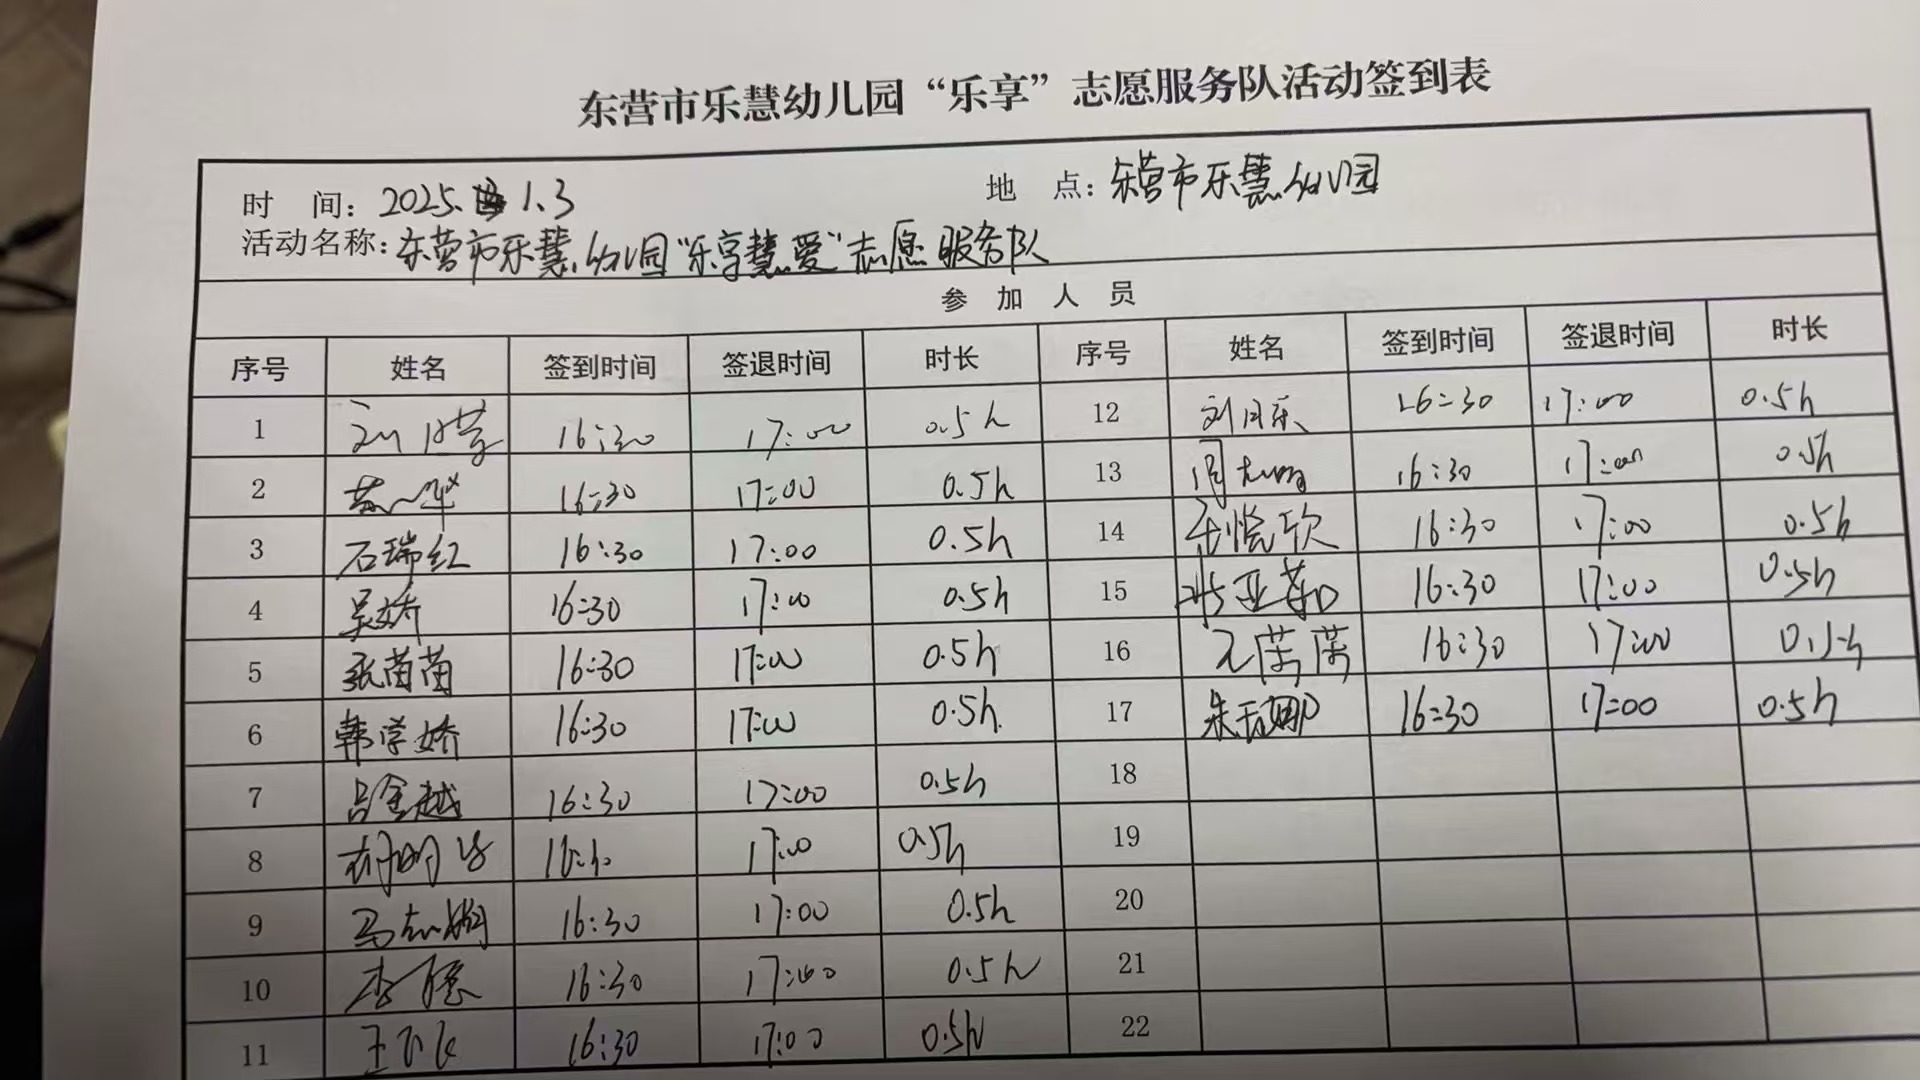 东营市乐慧幼儿园“乐享”志愿服务队活动签到表
时 间：2025. 1.3 地 点：东营市乐慧幼儿园
活动名称：东营市乐慧幼儿园“乐享慧爱”志愿服务队
参 加 人 员
序号 姓名 签到时间 签退时间 时长 序号 姓名 签到时间 签退时间 时长
1 16:30 17:00 0.5h 12 16:30 17:00 0.5h
2 16:30 17:00 0.5h 13 16:30 17:00 0.5h
3 石瑞红 16:30 17:00 0.5h 14 16:30 17:00 0.5h
4 吴娇 16:30 17:00 0.5h 15 16:30 17:00 0.5h
5 张苗苗 16:30 17:00 0.5h 16 16:30 17:00 0.5h
6 韩学娇 16:30 17:00 0.5h 17 16:30 17:00 0.5h
7 吕金越 16:30 17:00 0.5h 18
8 17:00 0.5h 19
9 16:30 17:00 0.5h 20
10 16:30 17:00 0.5h 21
11 16:30 17:00 0.5h 22